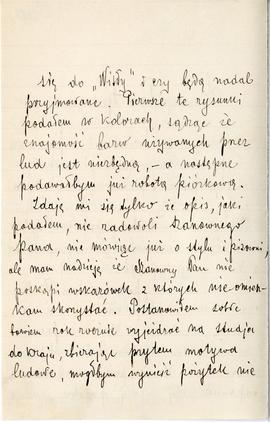 się do „Wisły" i czy będą nadal
przyjmowane. Pierwsze te rysunki
podałem w kolorach, sądząc że
znajomość barw używanych przez
lud jest niezbędną, – a następne
podawałbym już robotą piórkową.
Zdaję mi się tylko że opis, jaki
podałem, nie zadowoli Szanownego
Pana, nie mówiąc już o stylu i pisowni,
ale mam nadzieję że Szanowny Pan nie
poskąpi wskazówek z których nie omiesz-
kam skorzystać. Postanowiłem sobie
bowiem rok rocznie wyjeżdżać na studja
do kraju, zbierając przytem motywa
ludowe, mógłbym wynieść pożytek nie